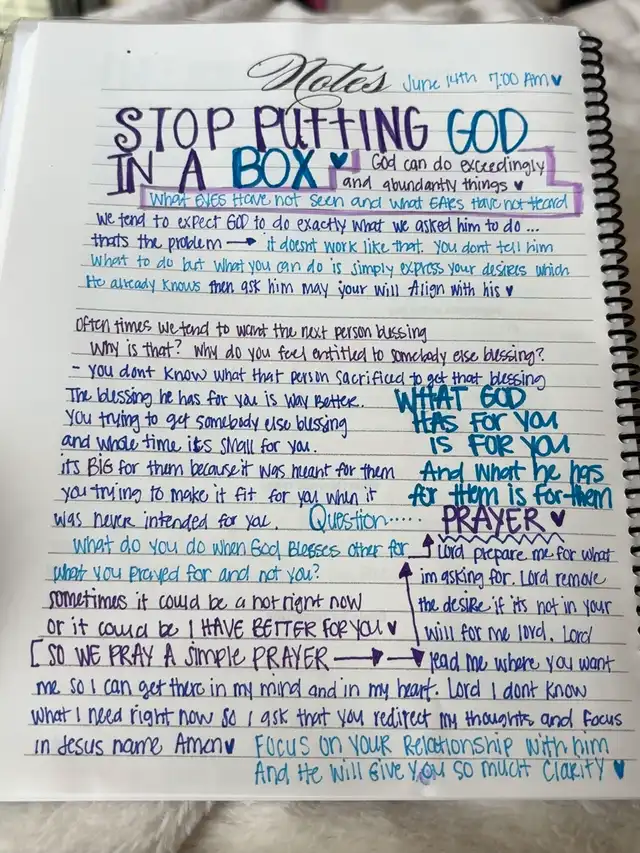 Notes June 14th 7:00 Am♥
STOP PUTTING GOD
IN A BOX ♥ God can do exceedingly
and abundantly things ♥
What EYES Have not seen and what EARS Have not Heard
We tend to expect GOD to do exactly what we asked him to do ...
thats the problem → it doesnt work like that. You dont tell him
What to do but what you can do is simply express your desires which
He already knows then ask him may your will Align with his ♥
Often times we tend to want the next person blessing
Why is that? Why do you feel entitled to somebody else blessing?
- you dont know what that person sacrificed to get that blessing
The blessing he has for you is way better.
You trying to get somebody else blssing
and whole time its small for you.
its BIG for them because it was meant for them
you trying to make it fit for you when it
was never intended for you.
WHAT GOD
HAS FOR YOU
IS FOR YOU
And what he has
for them is for them
Question......
What do you do when God Blesses other for
what you prayed for and not you?
sometimes it could be a not right now
or it could be I HAVE BETTER FOR YOU ♥
[ SO WE PRAY A simple PRAYER → →
PRAYER ♥
Lord prepare me for what
im asking for. Lord remove
the desire if its not in your
will for me lord. Lord
lead me where you want
me so I can get there in my mind and in my heart. Lord I dont know
What I need right now so I ask that you redirect my thoughts and focus
in Jesus name Amen♥
Focus on your Relationship with him
And He will Give you so much Clarity ♥